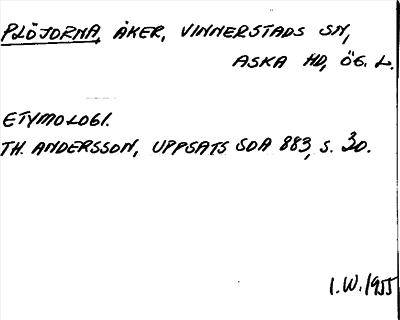 PLÖJORNA, ÅKER, VINNERSTADS SN,
ASKA HD, ÖG. L.
ETYMOLOGI.
TH. ANDERSSON, UPPSATS SOA 883, S. 30.
I.W. 1955